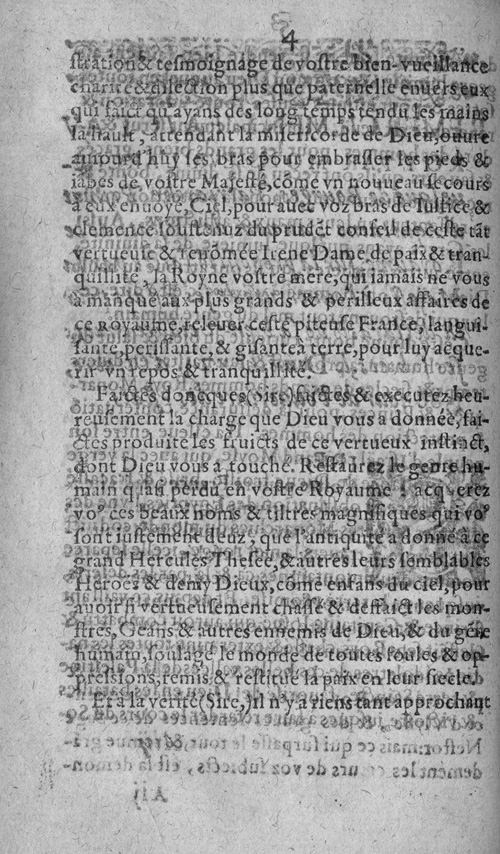 4
stration & tesmoignage de vostre bien-vueillance
charité & dilection plus que paternelle enuers eux
qui faict qu'ayans des long temps tendu les mains
la hault, attendant la misericorde de Dieu, ouure
auiourd'huy ses bras pour embrasser les pieds &
iābes de vostre Majesté, cōme vn nouueau secours
à eux enuoyé, Ciel, pour auec voz bras de Iustice &
clemence soustenuz du prudēt conseil de ceste tāt
vertueuse & renōmée Irene Dame de paix & tran-
quillité, la Royne vostre mere, qui iamais ne vous
à manqué aux plus grands & perilleux affaires de
ce Royaume, releuer ceste piteuse France, langui-
sante, perissante, & gisante à terre, pour luy acque-
rir vn repos & tranquillité.
Faictes doncques (Sire) faictes & executez heu-
reusement la charge que Dieu vous a donnée, fai-
ctes produire les fruicts de ce vertueux instinct,
dont Dieu vous a touché. Restaurez le genre hu-
main quasi perdu en vostre Royaume: acquerez
vo⁹ ces beaux noms & tiltres magnifiques qui vo⁹
sont iustement deuz, que l'antiquité a donné à ce
grand Hercules Thesée, & autres leurs semblables
Heroes & demy Dieux, cōme enfans du ciel, pour
auoir si vertueusement chassé & deffaict les mon-
stres, Geans & autres ennemis de Dieu, & du gēre
humain, soulagé le monde de toutes foules & op-
pressions, remis & restitué la paix en leur siecle.
Et à la verité (Sire,) il n'y a riens tant approchant